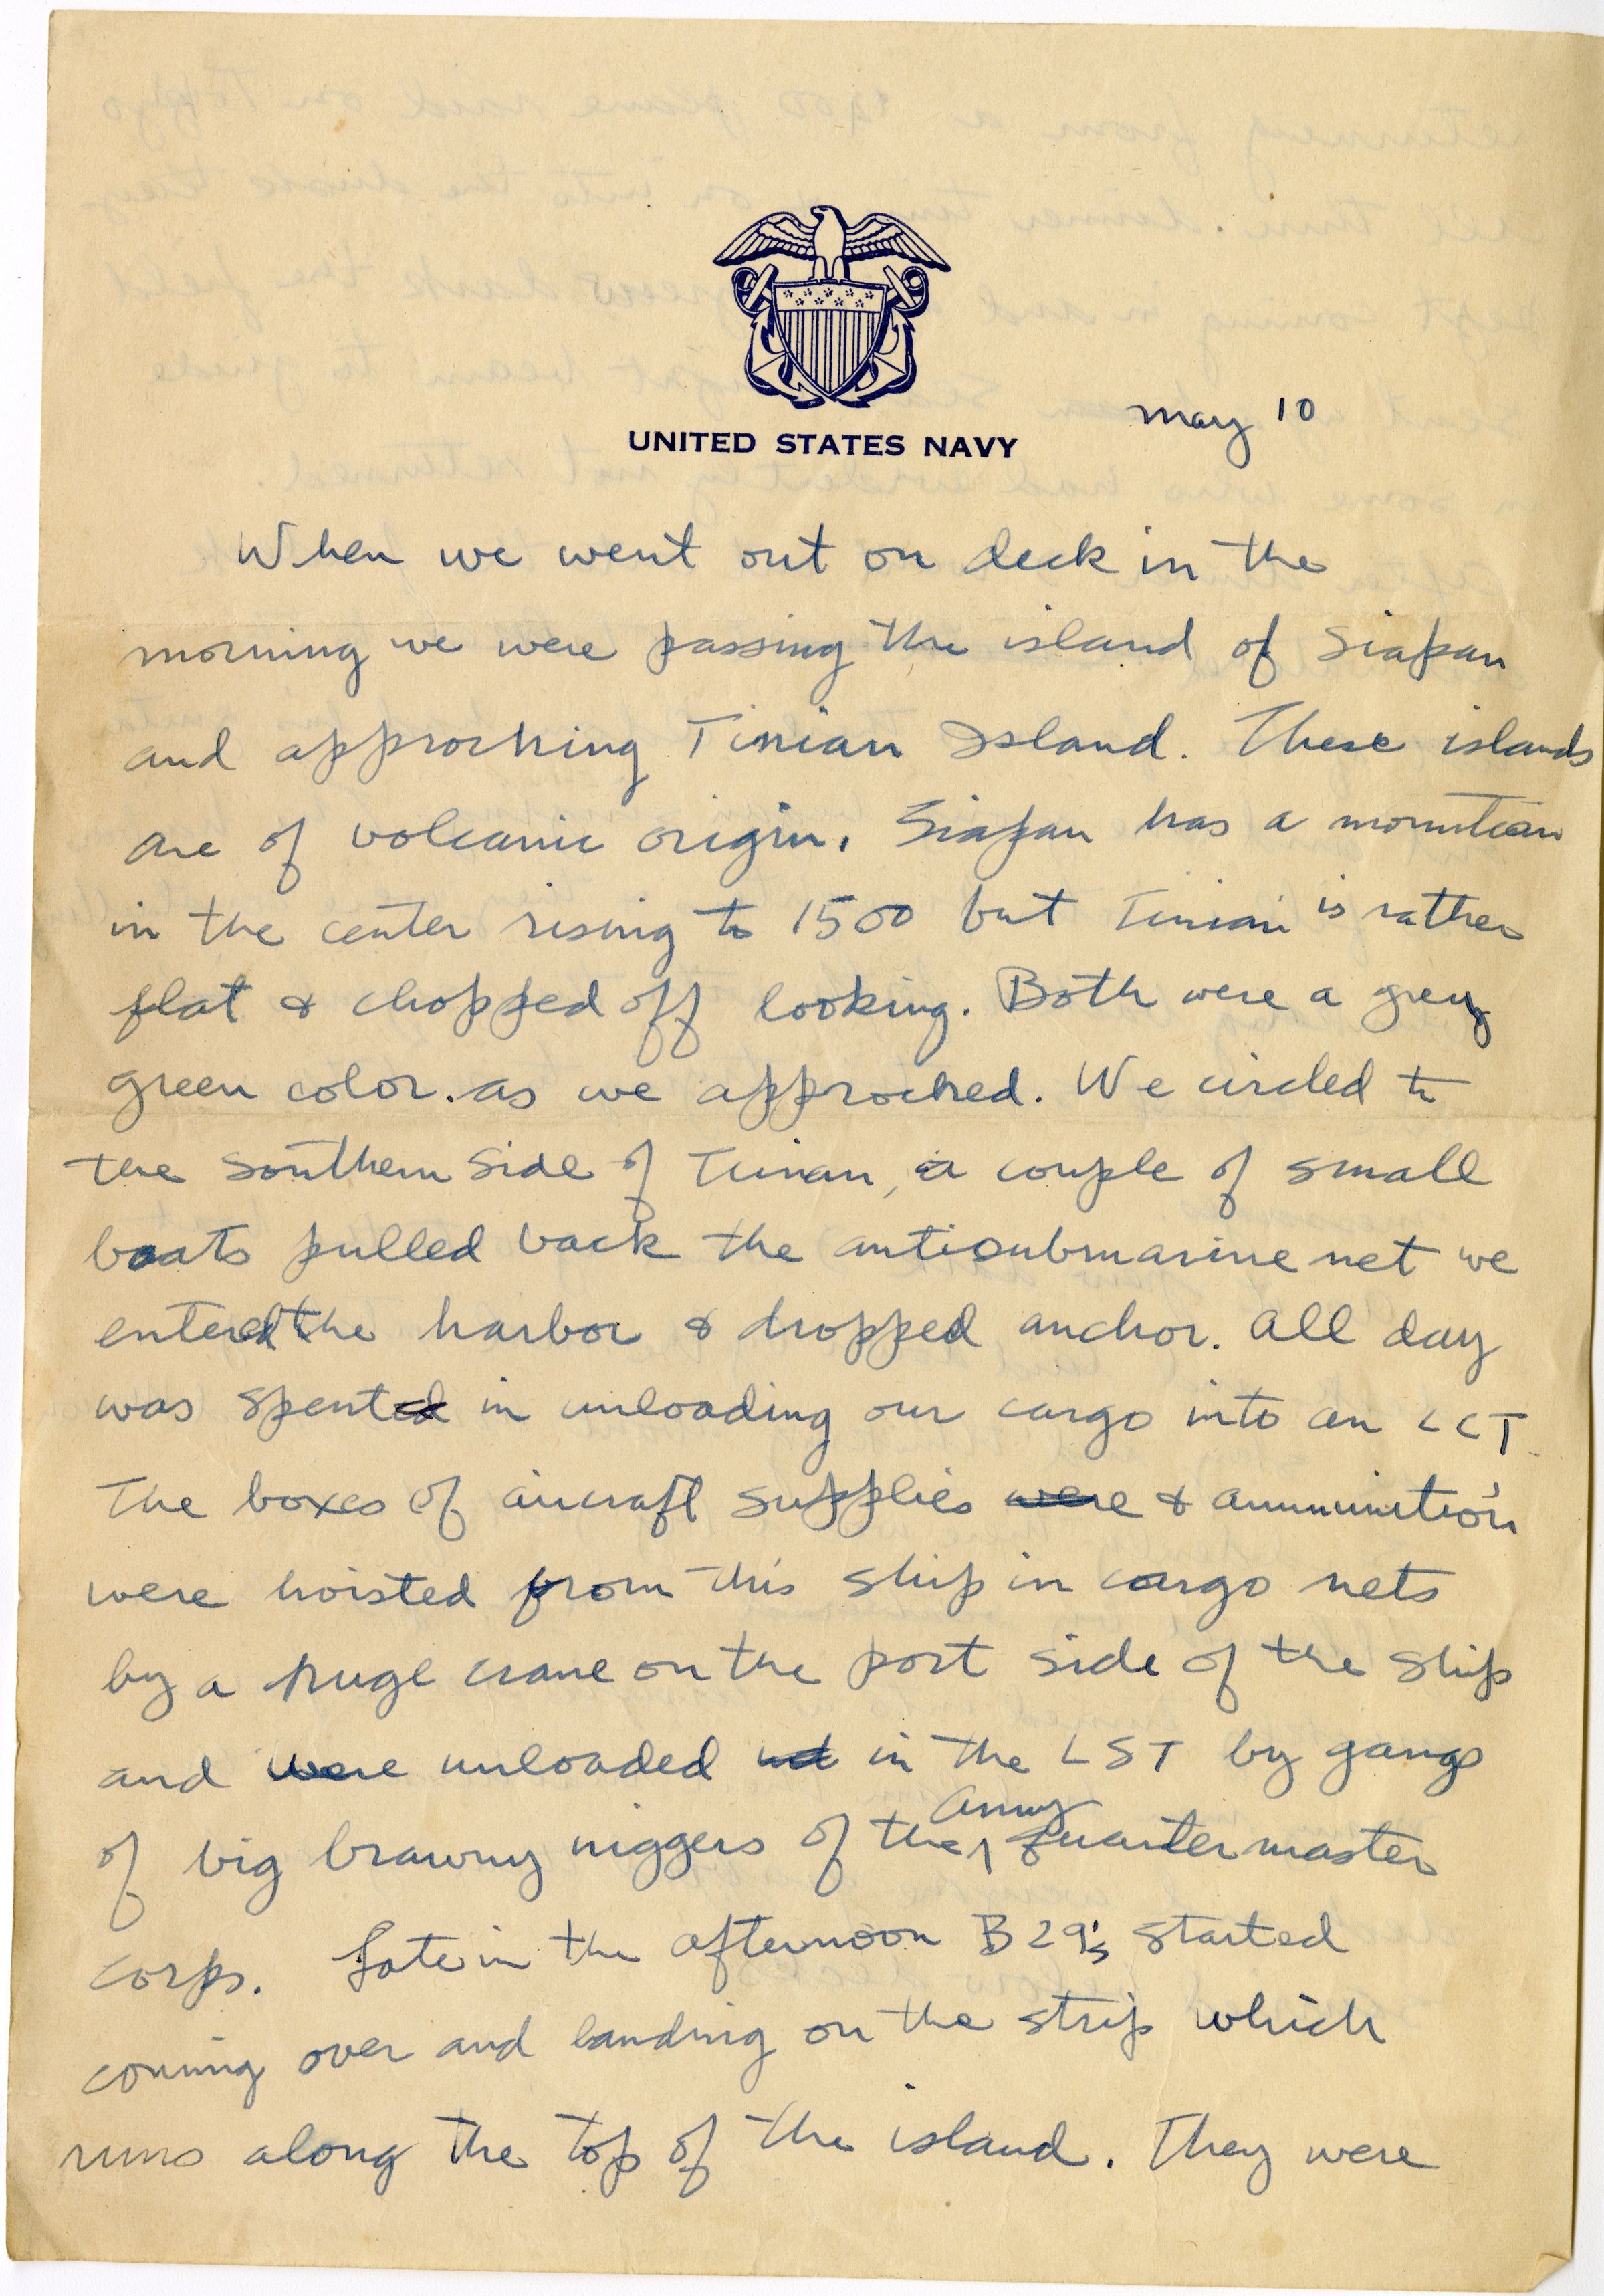 UNITED STATES NAVY
May 10
When we went out on deck in the
morning we were passing the island of Siapan
and approching Tinian Island. These islands
are of volcanic origin. Siapan has a mountian
in the center rising to 1500 but Tinian is rather
flat & chopped off looking. Both were a grey
green color. as we approched. We circled to
the southern side of Tinian, a couple of small
boats pulled back the antisubmarine net we
entered the harbor & dropped anchor. All day
was spented in unloading our cargo into an LCT
The boxes of aircraft supplies were & ammunition
were hoisted from this ship in cargo nets
by a huge crane on the port side of the ship
and were unloaded in the LST by gangs
of big brawny niggers of the Army Quartermaster
Corps. Late in the afternoon B29's started
coming over and landing on the strip which
runs along the top of the island. They were